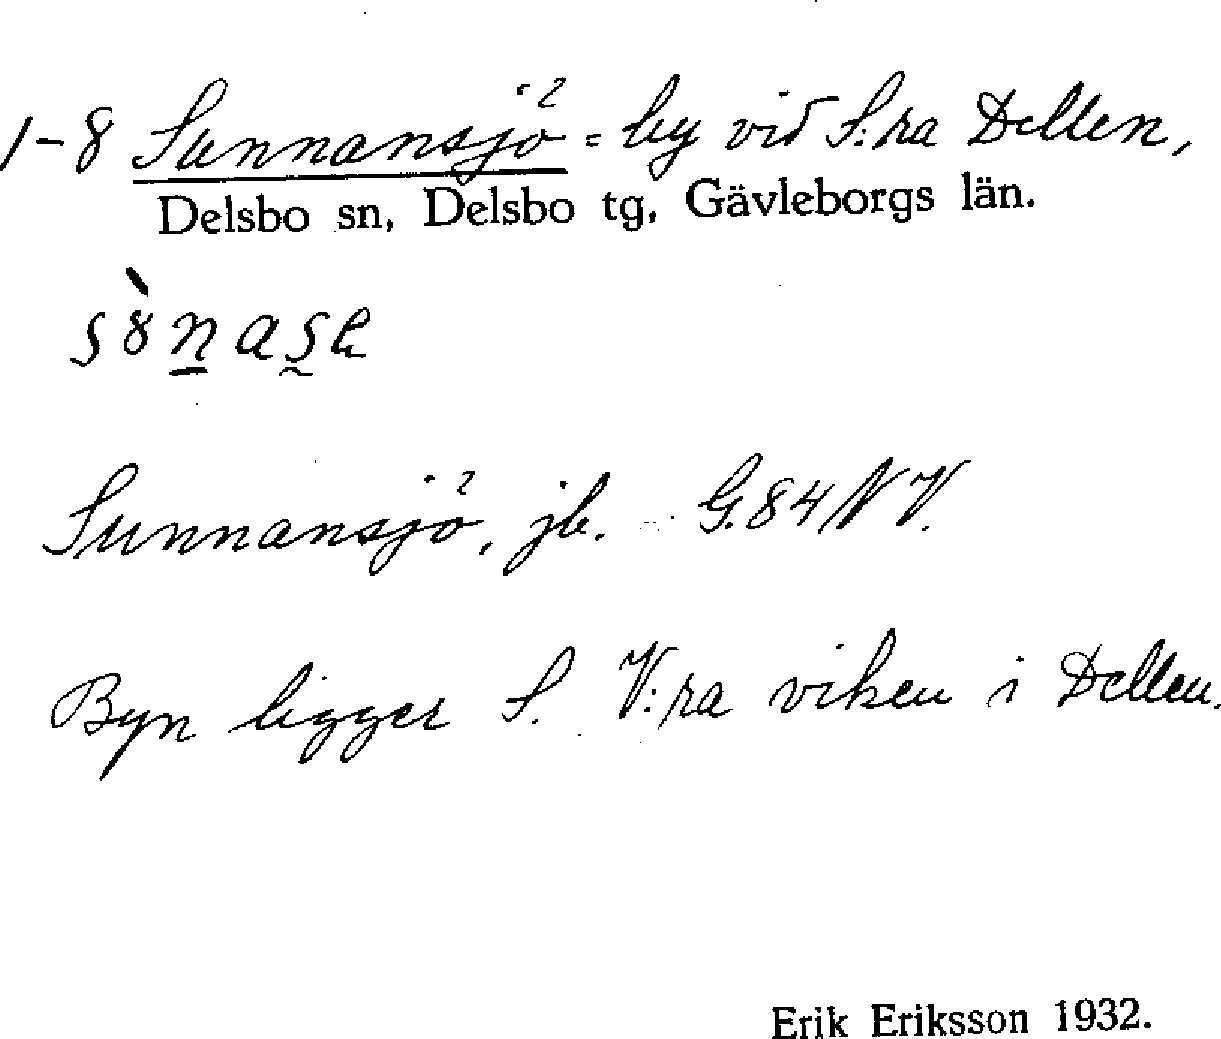 1-8 Sunnansjö = by vid S:ra Dellen,
Delsbo sn, Delsbo tg, Gävleborgs län.
Sunnansjö, jb. - G.84 NV.
Byn ligger S. V:ra viken i Dellen.
Erik Eriksson 1932.